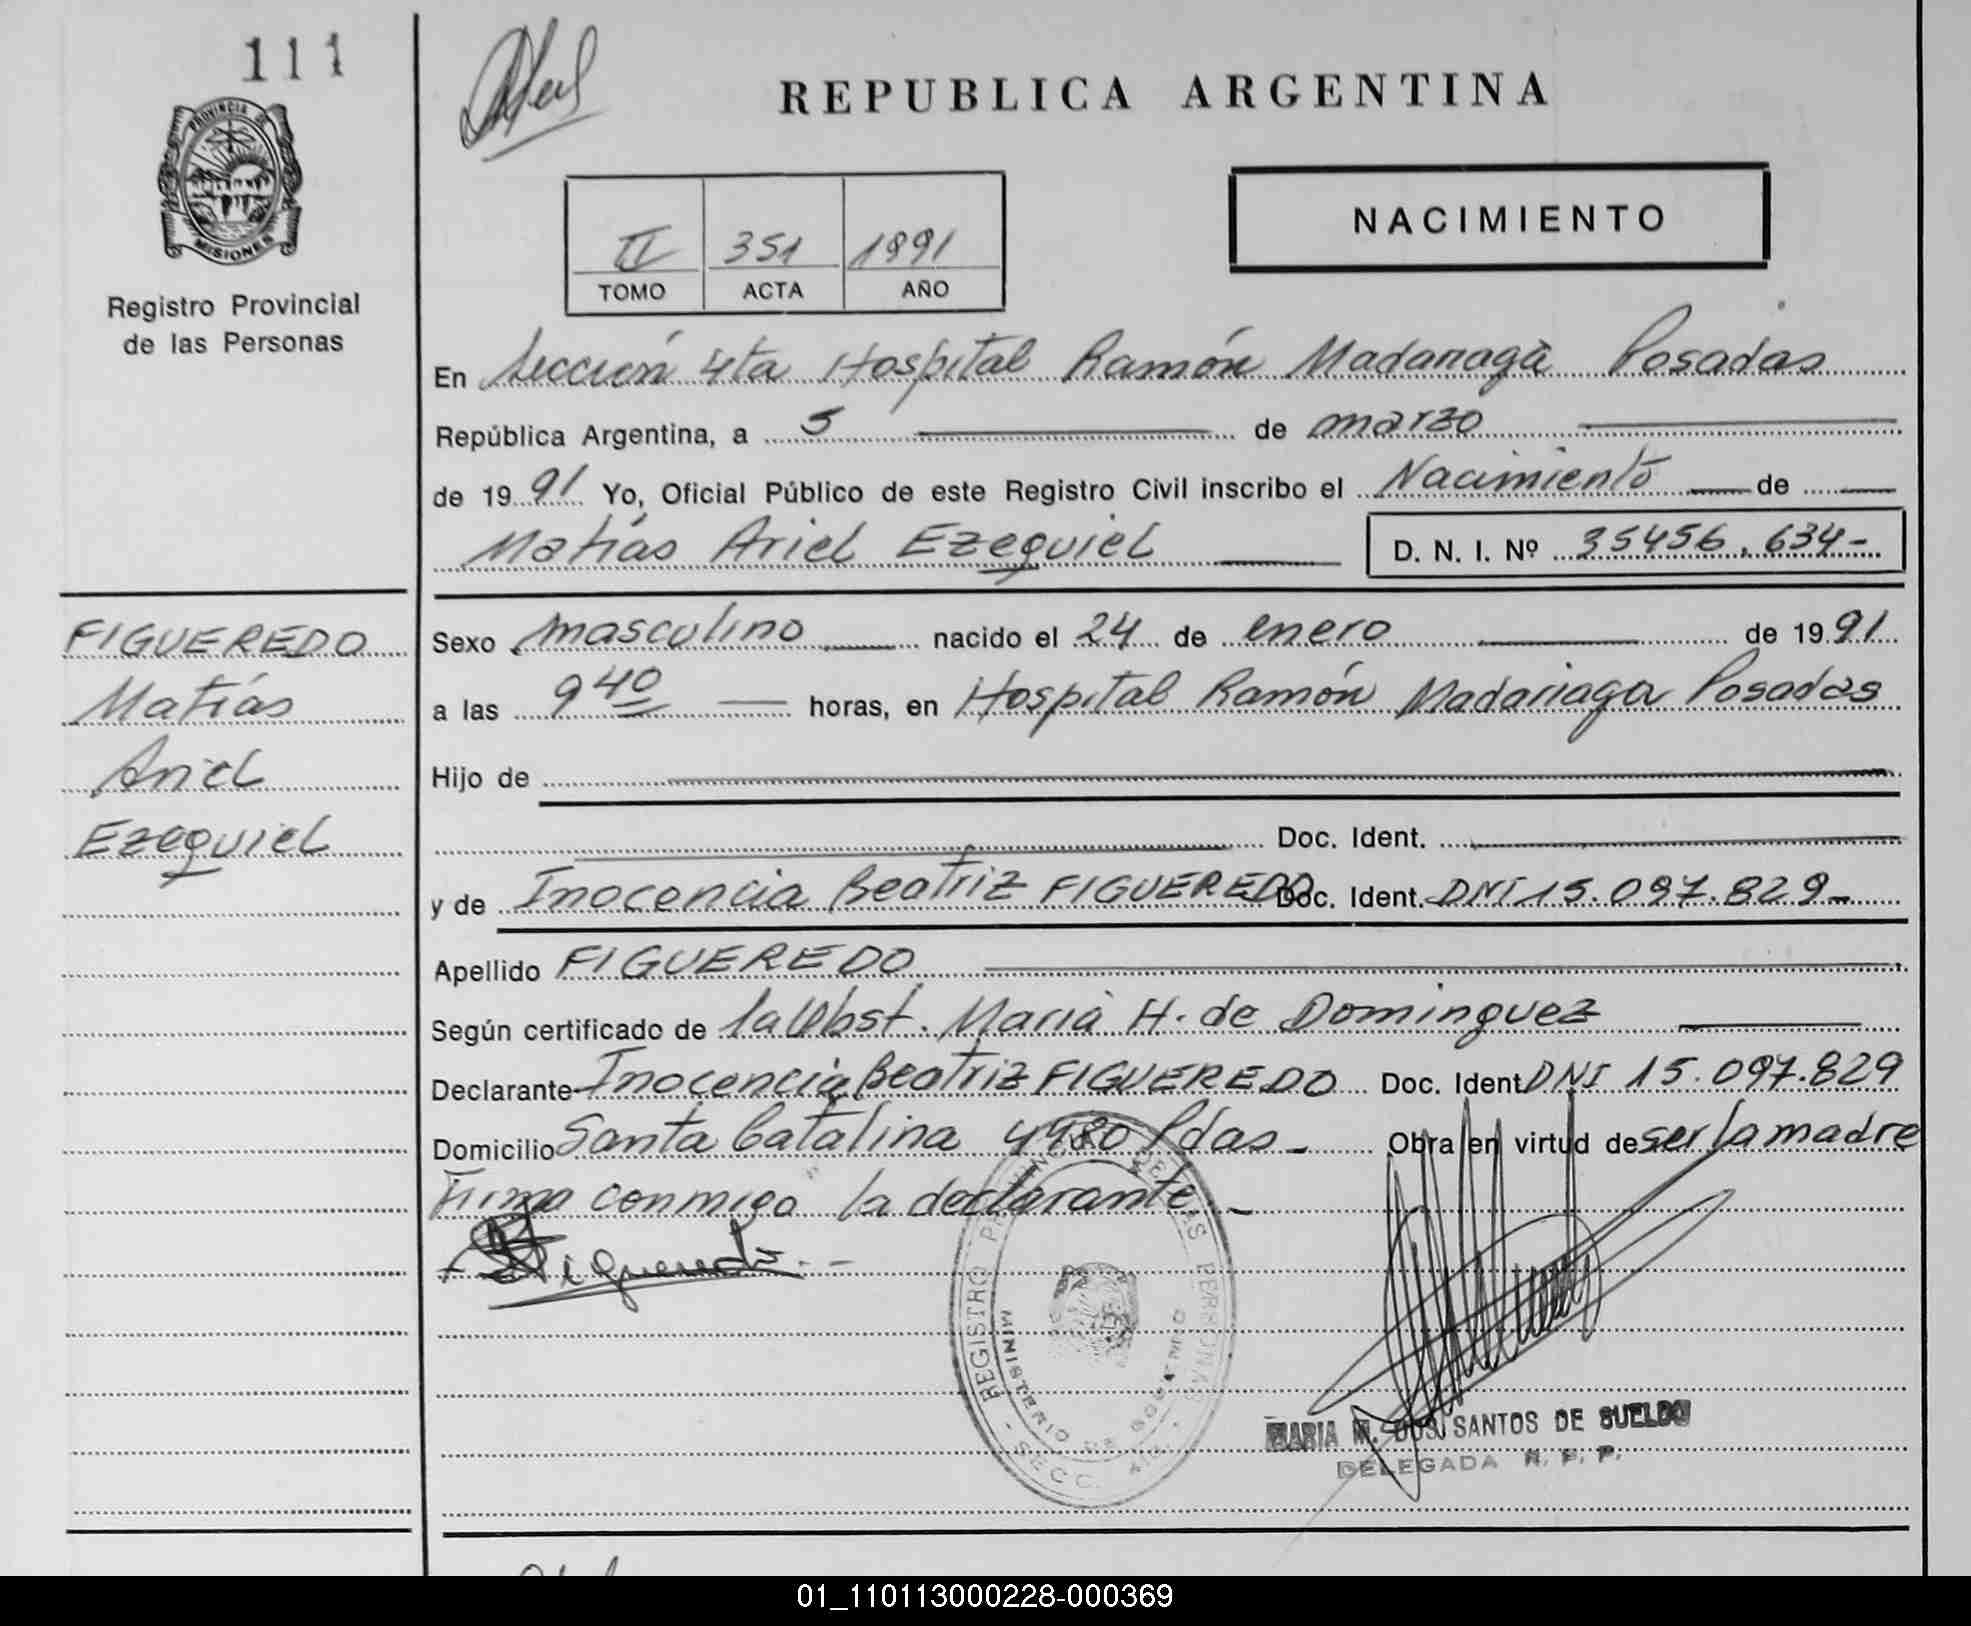 111
PROVINCIA DE
MISIONES
Registro Provincial
de las Personas
REPUBLICA ARGENTINA
NACIMIENTO
II 351 1991
TOMO ACTA AÑO
En Sección 4ta Hospital Ramón Madariaga Posadas
República Argentina, a 5 de marzo
de 1991 Yo, Oficial Público de este Registro Civil inscribo el Nacimiento de
Matías Ariel Ezequiel D. N. I. Nº 35456.634-
FIGUEREDO
Matías
Ariel
Ezequiel
Sexo masculino nacido el 24 de enero de 1991
a las 9 40 horas, en Hospital Ramón Madariaga Posadas
Hijo de
Doc. Ident.
y de Inocencia Beatriz FIGUEREDO Doc. Ident. DNI 15.097.829-
Apellido FIGUEREDO
Según certificado de la Obst. María H. de Dominguez
Declarante Inocencia Beatriz FIGUEREDO Doc. Ident DNI 15.097.829
Domicilio Santa Catalina 4980 Pdas- Obra en virtud de ser la madre
Firma conmigo la declarante-
Figueredo
REGISTRO PROVINCIAL DE LAS PERSONAS
MINISTERIO DE GOBIERNO
- SECC. 4ta. -
MARIA M. DOS SANTOS DE SUELDO
DELEGADA R. P. P.
01_110113000228-000369